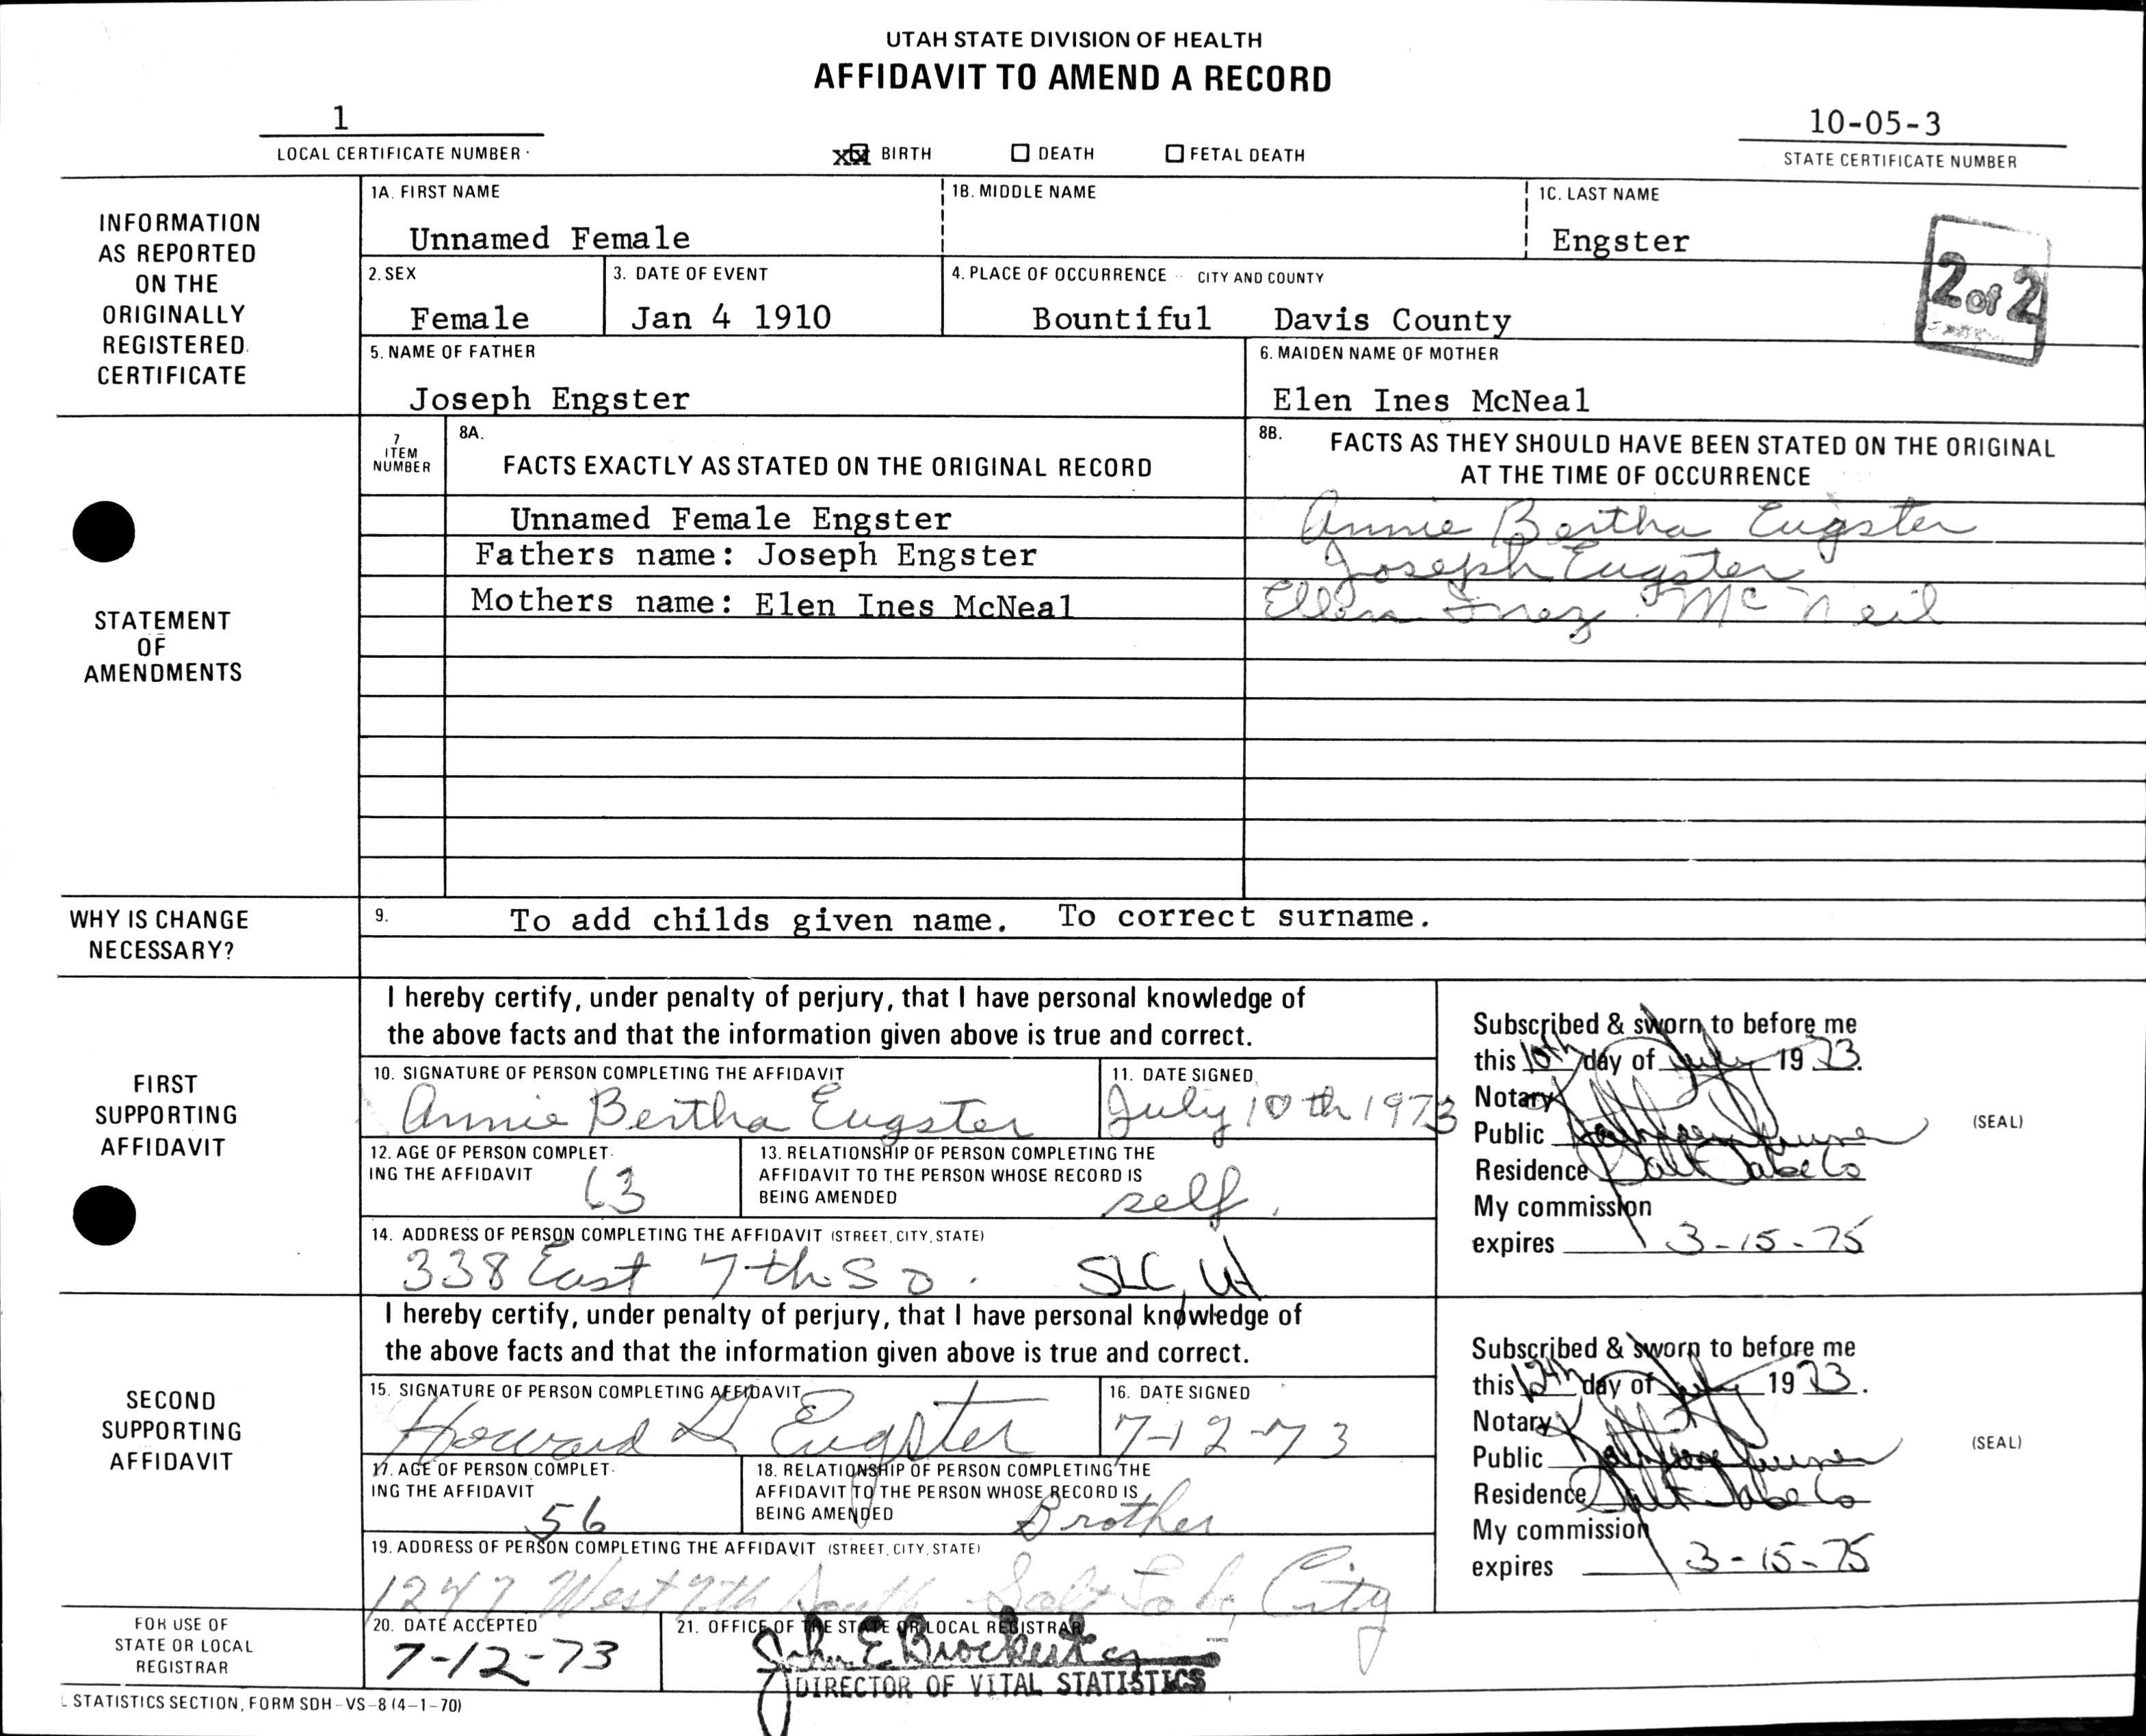 UTAH STATE DIVISION OF HEALTH
AFFIDAVIT TO AMEND A RECORD
1
LOCAL CERTIFICATE NUMBER
XX BIRTH DEATH FETAL DEATH
10-05-3
STATE CERTIFICATE NUMBER
INFORMATION AS REPORTED ON THE ORIGINALLY REGISTERED CERTIFICATE
1A. FIRST NAME 1B. MIDDLE NAME 1C. LAST NAME
Unnamed Female Engster
2 of 2
2. SEX 3. DATE OF EVENT 4. PLACE OF OCCURRENCE CITY AND COUNTY
Female Jan 4 1910 Bountiful Davis County
5. NAME OF FATHER 6. MAIDEN NAME OF MOTHER
Joseph Engster Elen Ines McNeal
STATEMENT OF AMENDMENTS
7 ITEM NUMBER
8A. FACTS EXACTLY AS STATED ON THE ORIGINAL RECORD
8B. FACTS AS THEY SHOULD HAVE BEEN STATED ON THE ORIGINAL
AT THE TIME OF OCCURRENCE
Unnamed Female Engster Annie Bertha Eugster
Fathers name: Joseph Engster Joseph Eugster
Mothers name: Elen Ines McNeal Ellen Inez McNeil
WHY IS CHANGE NECESSARY?
9. To add childs given name. To correct surname.
FIRST SUPPORTING AFFIDAVIT
I hereby certify, under penalty of perjury, that I have personal knowledge of
the above facts and that the information given above is true and correct.
10. SIGNATURE OF PERSON COMPLETING THE AFFIDAVIT 11. DATE SIGNED
Annie Bertha Eugster July 10th 1973
12. AGE OF PERSON COMPLET-
ING THE AFFIDAVIT 63
13. RELATIONSHIP OF PERSON COMPLETING THE
AFFIDAVIT TO THE PERSON WHOSE RECORD IS
BEING AMENDED self
14. ADDRESS OF PERSON COMPLETING THE AFFIDAVIT (STREET, CITY, STATE)
338 East 7th So. SLC, Ut
Subscribed & sworn to before me
this 10th day of July 1973.
Notary
Public
Residence Salt Lake Co
My commission
expires 3-15-75
(SEAL)
SECOND SUPPORTING AFFIDAVIT
I hereby certify, under penalty of perjury, that I have personal knowledge of
the above facts and that the information given above is true and correct.
15. SIGNATURE OF PERSON COMPLETING AFFIDAVIT 16. DATE SIGNED
Howard Eugster 7-12-73
17. AGE OF PERSON COMPLET-
ING THE AFFIDAVIT 56
18. RELATIONSHIP OF PERSON COMPLETING THE
AFFIDAVIT TO THE PERSON WHOSE RECORD IS
BEING AMENDED Brother
19. ADDRESS OF PERSON COMPLETING THE AFFIDAVIT (STREET, CITY, STATE)
1247 West 7th South Salt Lake City
Subscribed & sworn to before me
this 12th day of July 1973.
Notary
Public
Residence Salt Lake Co
My commission
expires 3-15-75
(SEAL)
FOR USE OF STATE OR LOCAL REGISTRAR
20. DATE ACCEPTED
7-12-73
21. OFFICE OF THE STATE OR LOCAL REGISTRAR
John E Brockert
DIRECTOR OF VITAL STATISTICS
STATISTICS SECTION, FORM SDH-VS-8 (4-1-70)